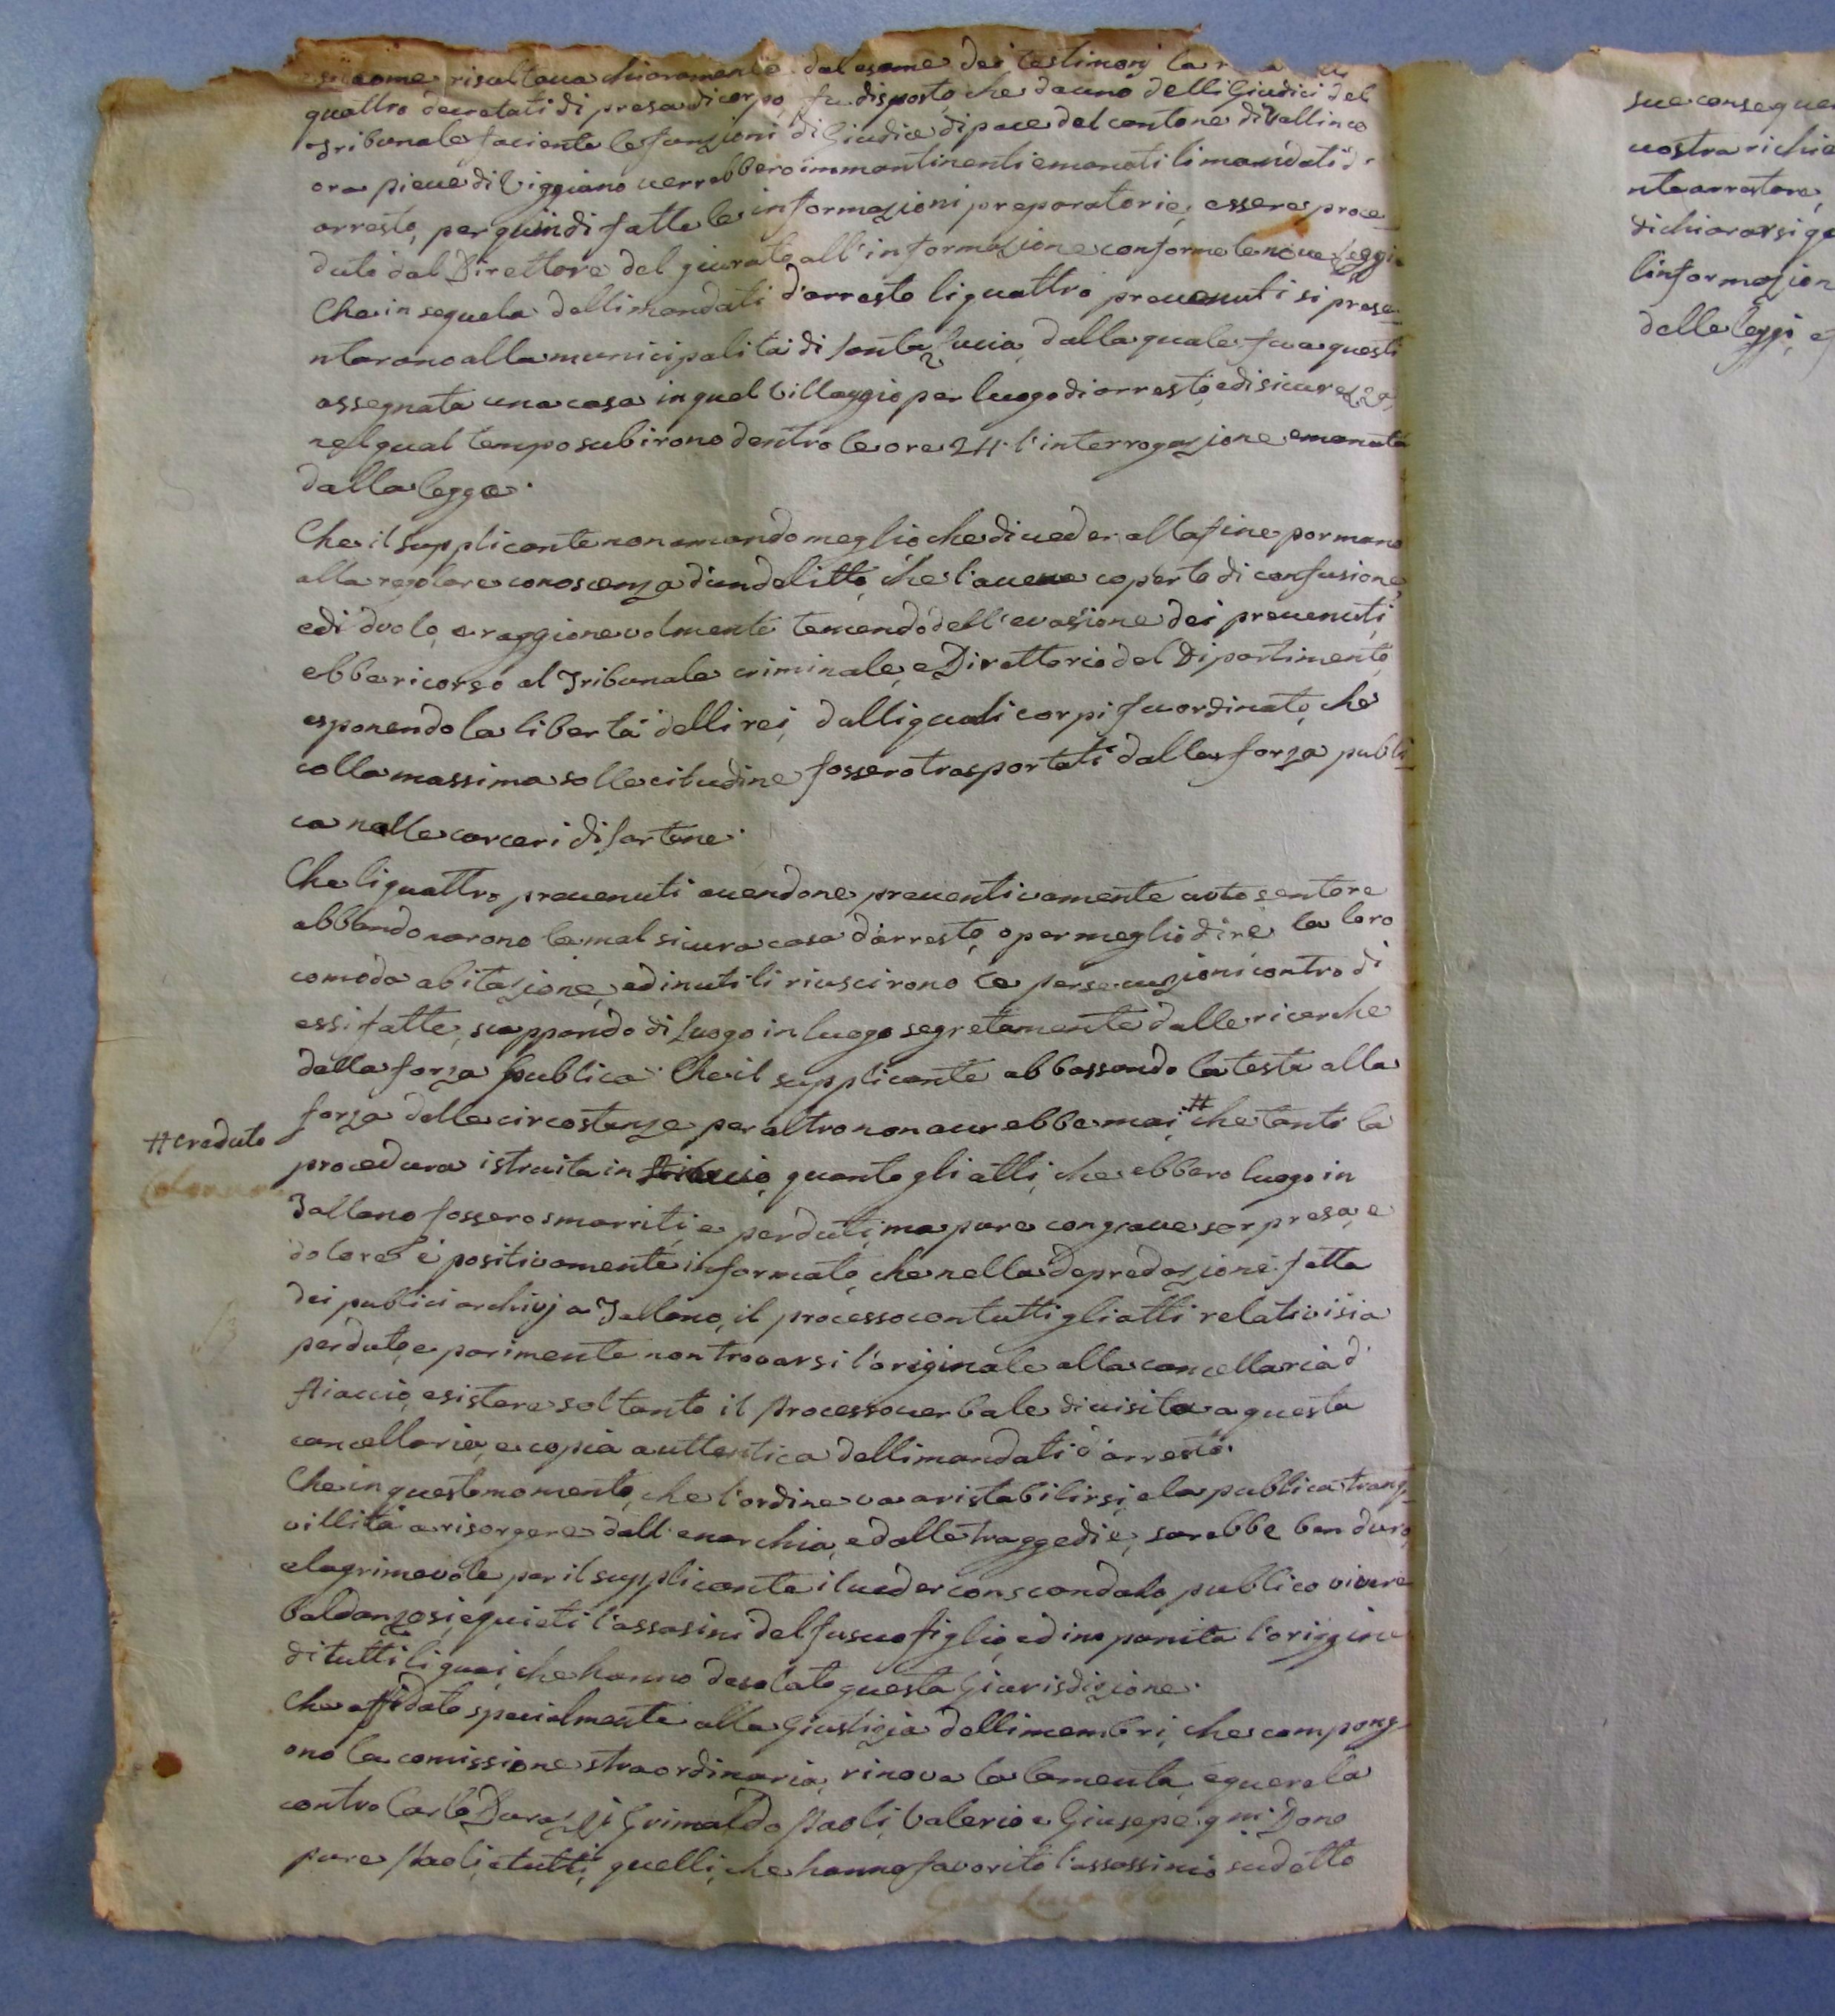 siccome risultava chiaramente dal esame dei testimonj la
quattro decretati di presa di corpo, fu disposto che da uno delli Giudici del
Tribunale faciente le funzioni di Giudice di pace del cantone di Vallinco
ora pieve di Viggiano verrebbero immantinenti emanati li mandati di
arresto, per quindi fatte le informazioni preparatorie, essere proce-
duto dal Direttore del giurato all'informazione conforme le nove Leggi.
Che in seguela delli mandati d'arresto li quattro prevenuti si prese-
ntarono alla municipalità di Santa Lucia, dalla quale fu a questi
assegnata una casa in quel Villaggio per luogo di arresto, e di sicurezza,
nel qual tempo subirono dentro le ore 24. l'interrogazione emanata
dalla legge.
Che il supplicante non amando meglio che di veder alla fine por mano
alla regolare conoscenza d'un delitto, che l'aveva coperto di confusione,
e di duolo, e raggionevolmente temendo dell'evasione dei prevenuti,
ebbe ricorso al Tribunale criminale, e Direttorio del Dipartimento,
esponendo la libertà delli rei, dalli quali corpi fu ordinato, che
colla massima sollecitudine fossero trasportati dalla forza publi-
ca nelle carceri di Sartene.
Che li quattro prevenuti avendone preventivamente auto sentore
abbandonarono la mal sicura casa d'arresto, o per meglio dire la loro
comoda abitazione, ed inutili riuscirono le persecuzioni contro di
essi fatte, scappando di luogo in luogo segretamente dalle ricerche
della forza publica. Che il supplicante abbassando la testa alla
forza delle circostanze per altro non avrebbe mai, # che tanto la
# creduto
Colonna
procedura istruita in Aiaccio, quanto gli atti, che ebbero luogo in
Tallano fossero smarriti, e perduti, ma pure con grave sorpresa, e
dolore è positivamente informato, che nella depredazione fatta
dei publici archivj a Tallano, il processo con tutti gli atti relativi sia
perduto, e parimente non trovarsi l'originale alla cancellaria d'
Aiaccio, esistere soltanto il Processo verbale di visita a questa
cancellaria, e copia auttentica delli mandati d'arresto.
Che in questo momento, che l'ordine va a ristabilirsi, e la publica tranq-
uillità a risorgere dall'enarchia, e dalle traggedie, sarebbe ben duro,
e lagrimevole per il supplicante il veder con scandalo publico vivere
baldanzosi, e quieti l'assasini del fu suo figlio, ed impunita l'origgine
di tutti li guai, che hanno desolato questa Giurisdizione.
Che affidato specialmente alla Giustizia delli membri, che compong-
ono la comissione straordinaria, rinova la lamenta, e querela
contro Carlo Durazzi Grimaldo Paoli, Valerio e Giusepe qm. Dono
pure Paoli, e tutti, quelli, che hanno favorito l'assassinio sudetto
sue conseque
nostra richie
nte arrestare,
dichiararsi ga
l'informazion
delle leggi, e